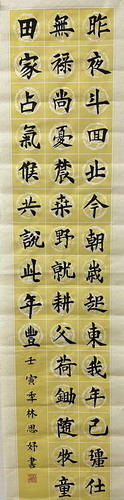 昨夜斗回北今朝歲起東我年已彊仕
無祿尚憂農桒野就耕父荷鋤隨牧童
田家占氣候共說此年豐
壬寅秊林思妤書